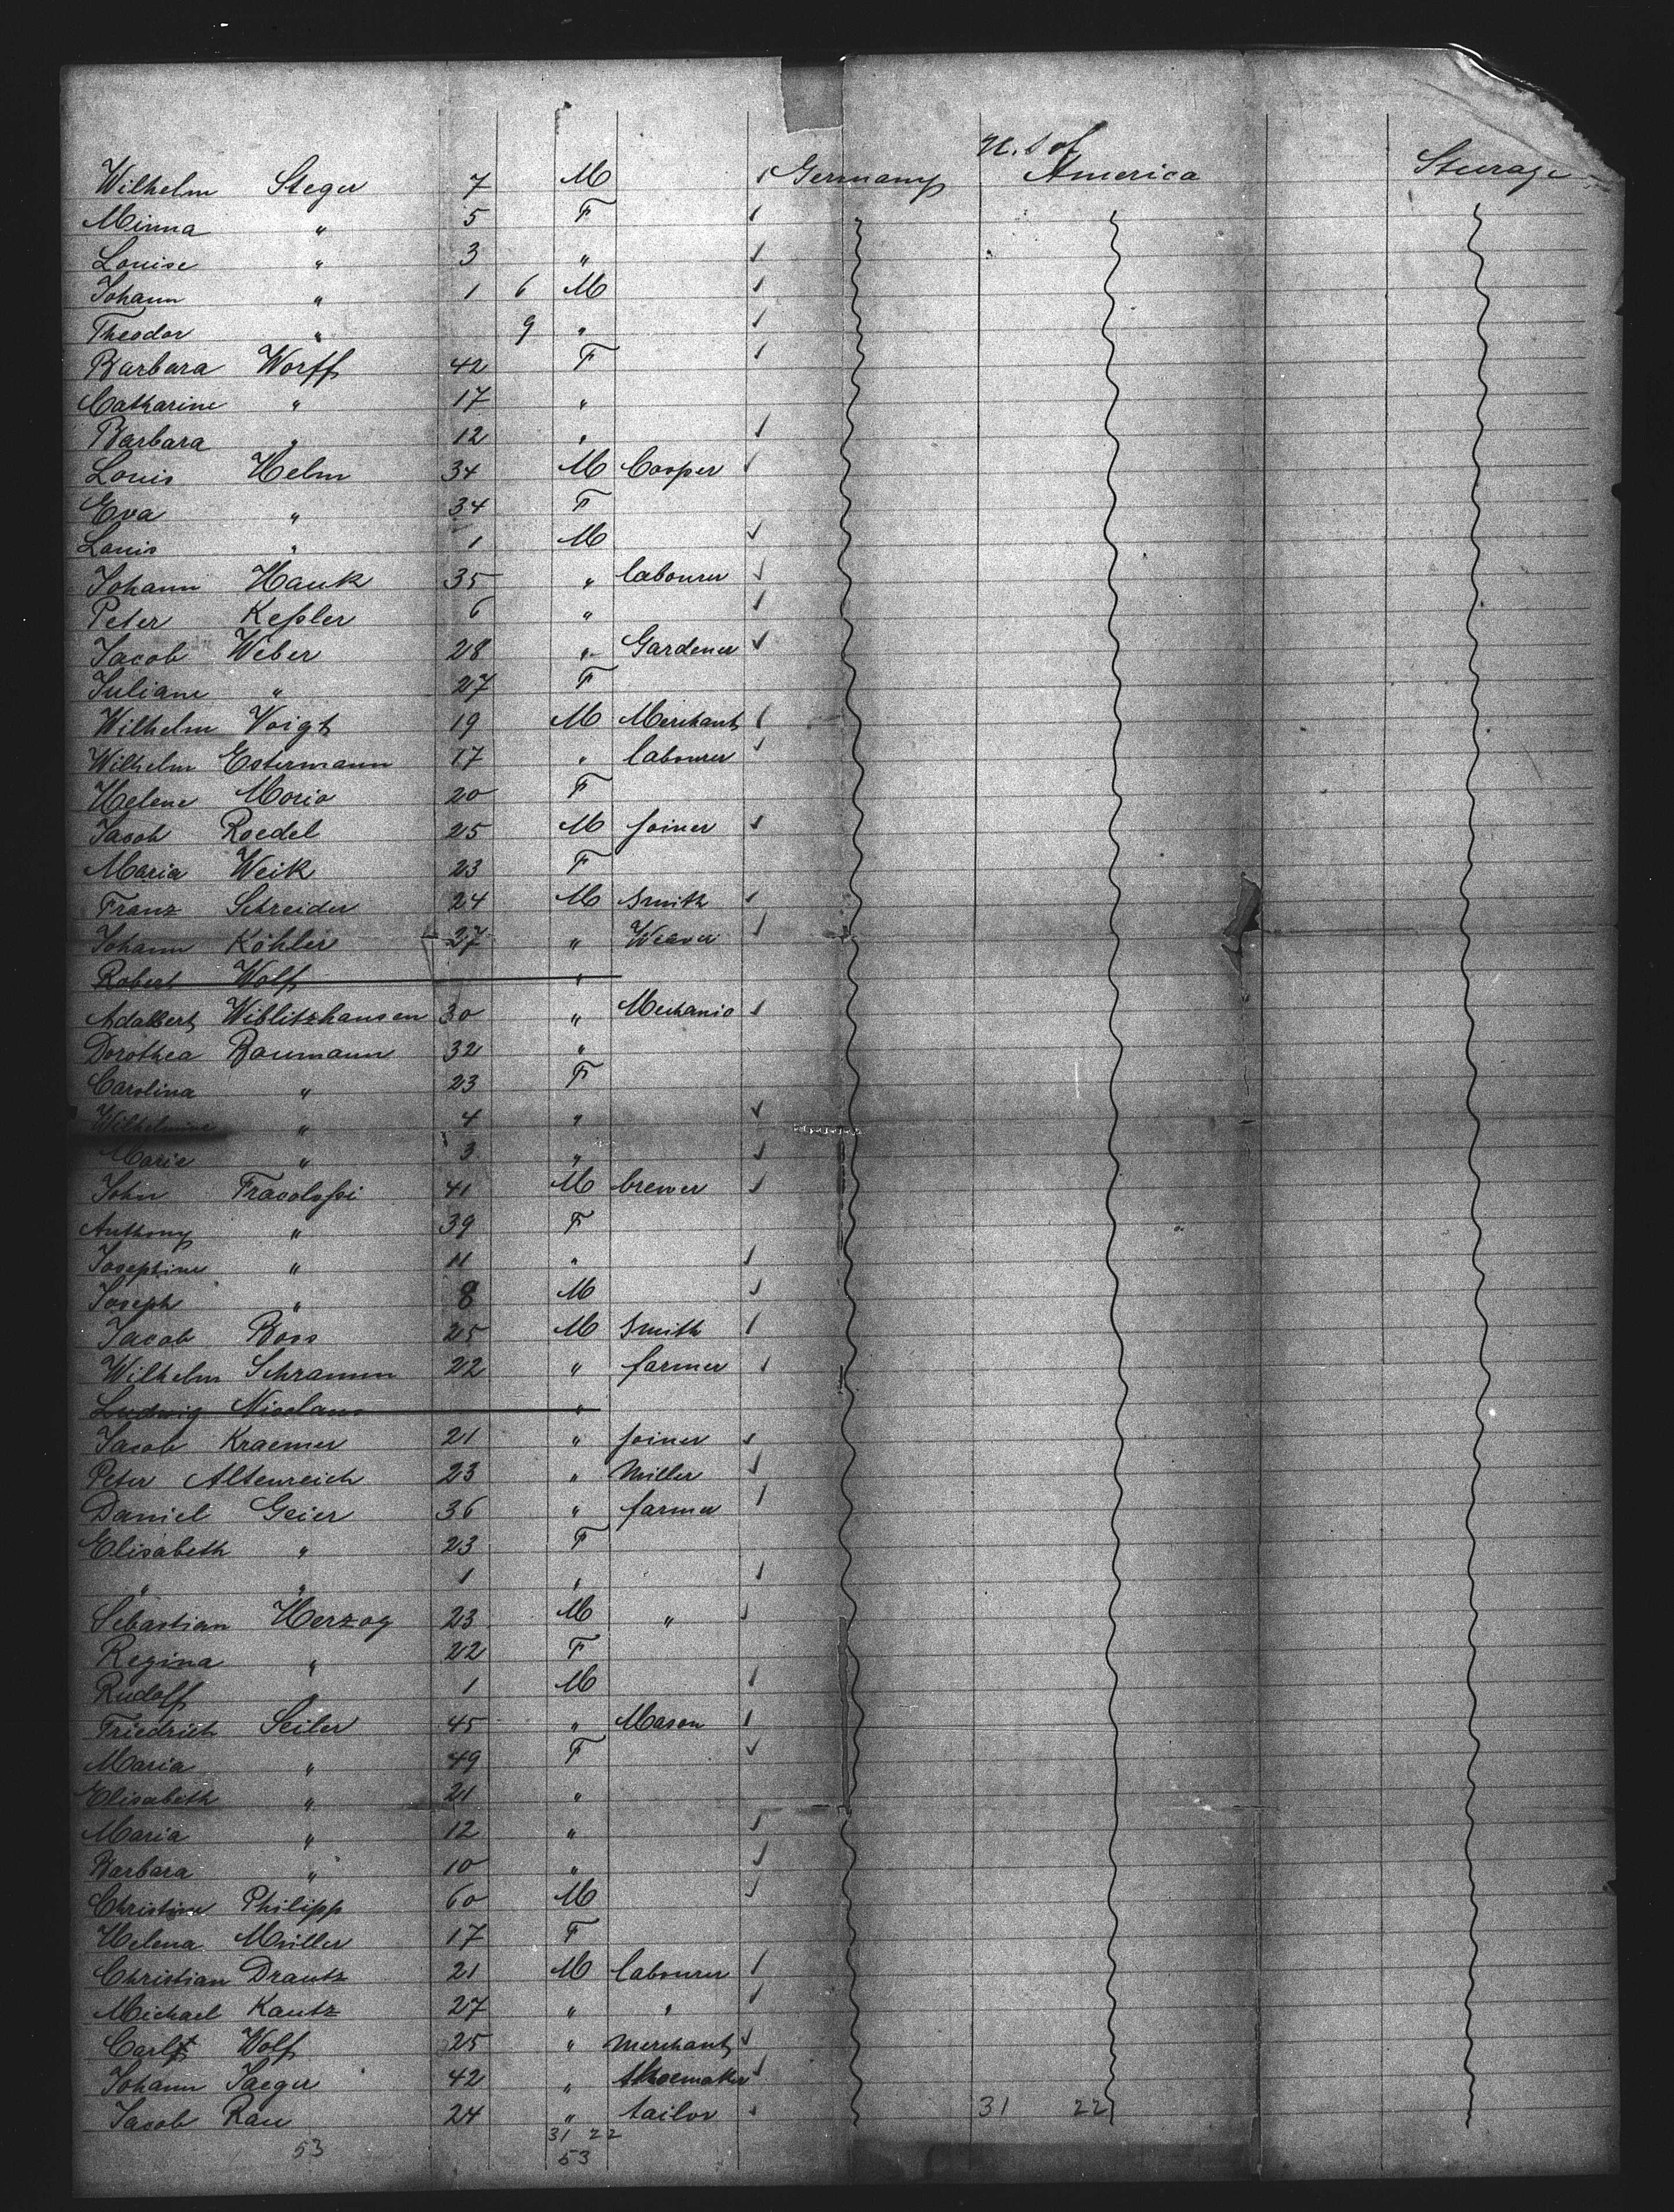 Wilhelm Steger 7 M Germany U. S of America Steerage
Minna " 5 F
Louise " 3 "
Johann " 1 6 M
Theodor " 9 "
Barbara Worff 42 F
Catharine " 17 "
Barbara " 12 "
Louis Helm 34 M Cooper
Eva " 34 F
Louis " 1 M
Johann Hauk 35 " labourer
Peter Keßler 6 "
Jacob Weber 28 " Gardener
Juliane " 27 F
Wilhelm Voigt 19 M Merchant
Wilhelm Estermann 17 " labourer
Helene Moria 20 F
Jacob Roedel 25 M joiner
Maria Weik 23 F
Franz Schreider 24 M Smith
Johann Köhler 27 " Weaver
Robert Wolf "
Adalbert Wiblitzhausen 30 " Mechanic
Dorothea Baumann 32 "
Carolina " 23 F
Wilhelmine " 4 "
Marie " 3 "
John Fracolossi 41 M brewer
Anthony " 39 F
Josephine " 11 "
Joseph " 8 M
Jacob Boss 25 M Smith
Wilhelm Schramm 22 " farmer
Ludwig Nicolaus "
Jacob Kraemer 21 " joiner
Peter Altenreich 23 " Miller
Daniel Geier 36 " farmer
Elisabeth " 23 F
" " 1 "
Sebastian Herzog 23 M "
Regina " 22 F
Rudolf " 1 M
Friedrich Seiler 45 " Mason
Maria " 49 F
Elisabeth " 21 "
Maria " 12 "
Barbara " 10 "
Christian Philipp 60 M
Helena Müller 17 F
Christian Drautz 21 M labourer
Michael Kautz 27 " "
Carl Wolf 25 " Merchant
Johann Jaeger 42 " Shoemaker
Jacob Rau 24 " tailor 31 22
31 22
53 53